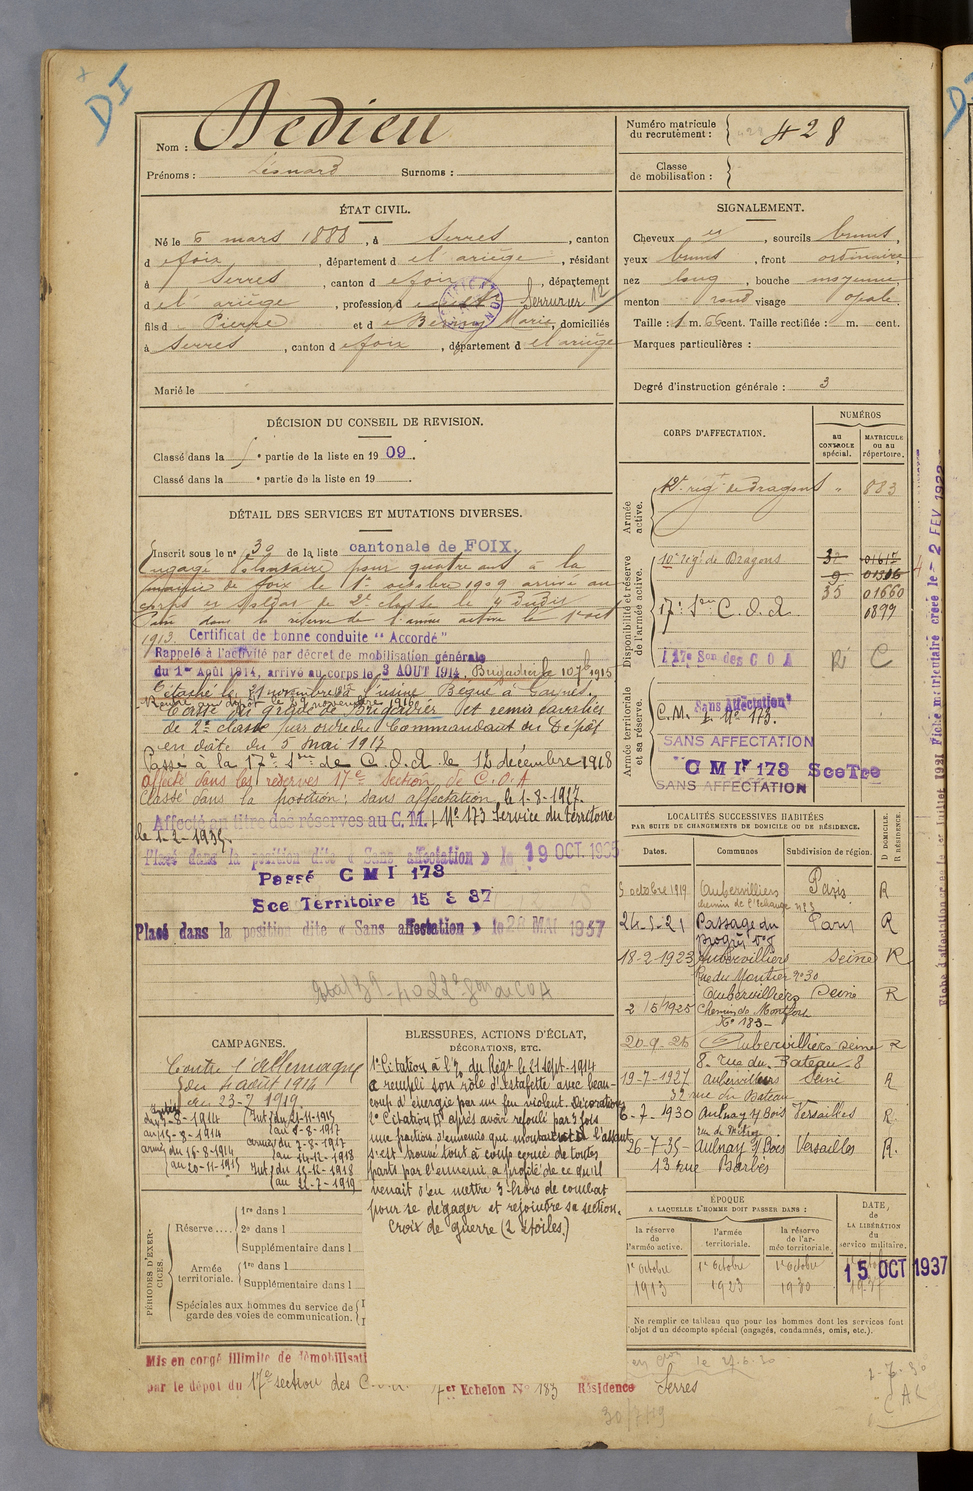 DI
Nom : Dedieu
Prénoms : Léonard Surnoms :
Numéro matricule du recrutement : 428
Classe de mobilisation :
ÉTAT CIVIL.
Né le 6 mars 1888, à Serres, canton
d Foix, département d el ariège, résidant
à Serres, canton d Foix, département
d el ariège, profession d Serrurier 12
fils d Pierre et d Marie, domiciliés
à Serres, canton d Foix, département d el ariège
Marié le
SIGNALEMENT.
Cheveux, sourcils bruns,
yeux bruns, front ordinaire
nez long, bouche moyenne
menton rond visage opale.
Taille : 1 m. 66 cent. Taille rectifiée : m. cent.
Marques particulières :
Degré d'instruction générale : 3
DÉCISION DU CONSEIL DE REVISION.
Classé dans la e partie de la liste en 19 09.
Classé dans la e partie de la liste en 19
DÉTAIL DES SERVICES ET MUTATIONS DIVERSES.
Inscrit sous le n° 39 de la liste cantonale de FOIX.
Engagé Volontaire pour quatre ans à la
mairie de Foix le 1er octobre 1909 arrivé au
corps et soldat de 2e classe le 4 dudit
Passé dans la réserve de l'armée active le 1er oct
1913. Certificat de bonne conduite "Accordé"
Rappelé à l'activité par décret de mobilisation générale
du 1er Août 1914, arrivé au corps le 3 AOUT 1914. Brigadier le 10 7bre 1915
Détaché le 21 novembre à l'usine Begué à
Rentré au dépôt le 27 novembre 1916
Cassé du grade de Brigadier et remis cavalier
de 2e classe par ordre du Commandant du Dépôt
en date du 5 mai 1917
Passé à la 17e Son de C.O.A le 12 décembre 1918
affecté dans les réserves 17e Section de C.O.A
Classé dans la position : sans affectation, le 1-8-1927.
Affecté au titre des réserves au C.M.I N° 173 Service du territoire
le 1-2-1935.
Placé dans la position dite « Sans affectation » le 19 OCT. 1935
Passé C M I 173
Sce Territoire 15 3 37
Placé dans la position dite « Sans affectation » le 20 MAI 1937
CORPS D'AFFECTATION.
NUMÉROS
au CONTROLE spécial.
MATRICULE ou au répertoire.
Armée active.
12e régt de Dragons " 883
Disponibilité et réserve de l'armée active.
10e régt de Dragons 32 01617
9 01306
17e Son C.O.A. 35 01660
0899
17e Son des C O A Ré C
Armée territoriale et sa réserve.
Sans Affectation
C.M. I. N° 173.
SANS AFFECTATION
C M Ir 173 Sce Tre
SANS AFFECTATION
LOCALITÉS SUCCESSIVES HABITÉES
PAR SUITE DE CHANGEMENTS DE DOMICILE OU DE RÉSIDENCE.
Dates. Communes Subdivision de région. D DOMICILE. R RÉSIDENCE.
3 octobre 1919 Aubervilliers Paris R
chemin de l'Echange n° 3
24-5-21 Passage du Paris R
progrès n° 8
18-2-1923 Aubervilliers Seine R
Rue du Moutier n° 30
Aubervilliers Seine R
2/5/1925 Chemin de Montfort
N° 183
20-9-26 Aubervilliers Seine R
8. rue du Bateau - 8
19-7-1927 Aubervilliers Seine R
32 rue du Bateau
6-7-1930 Aulnay s/ Bois Versailles R.
26-7-35 Aulnay s/ Bois Versailles R.
13 rue Barbès
CAMPAGNES.
Contre l'Allemagne
du 4 août 1914
au 23-7-1919
BLESSURES, ACTIONS D'ÉCLAT,
DÉCORATIONS, ETC.
1e Citation à l'o/ du Régt le 21 Sept. 1914
a rempli son rôle d'estafette avec beau-
coup d'énergie par un feu violent. Décorations
2e Citation après avoir refoulé par 3 fois
une fraction d'ennemis qui montaient à l'assaut
s'est trouvé tout à coup cerné de toutes
parts par l'ennemi a profité de ce qu'il
venait d'en mettre 3 hors de combat
pour se dégager et rejoindre sa section.
Croix de guerre (2 étoiles.)
PÉRIODES D'EXERCICES.
Réserve ....
1re dans l
2e dans l
Supplémentaire dans l
Armée territoriale.
1re dans l
Supplémentaire dans l
Spéciales aux hommes du service de garde des voies de communication.
ÉPOQUE
A LAQUELLE L'HOMME DOIT PASSER DANS :
la réserve de l'armée active.
l'armée territoriale.
la réserve de l'armée territoriale.
DATE de LA LIBÉRATION du service militaire.
1er octobre 1913
1er octobre 1923
1er octobre 1930
15 OCT 1937
Ne remplir ce tableau que pour les hommes dont les services font
l'objet d'un décompte spécial (engagés, condamnés, omis, etc.).
Mis en congé illimité de démobilisati
par le dépôt du 17e section des C.O.A. 4er Echelon N° 183 Résidence Serres
30/7/19
2-7-30
CAC